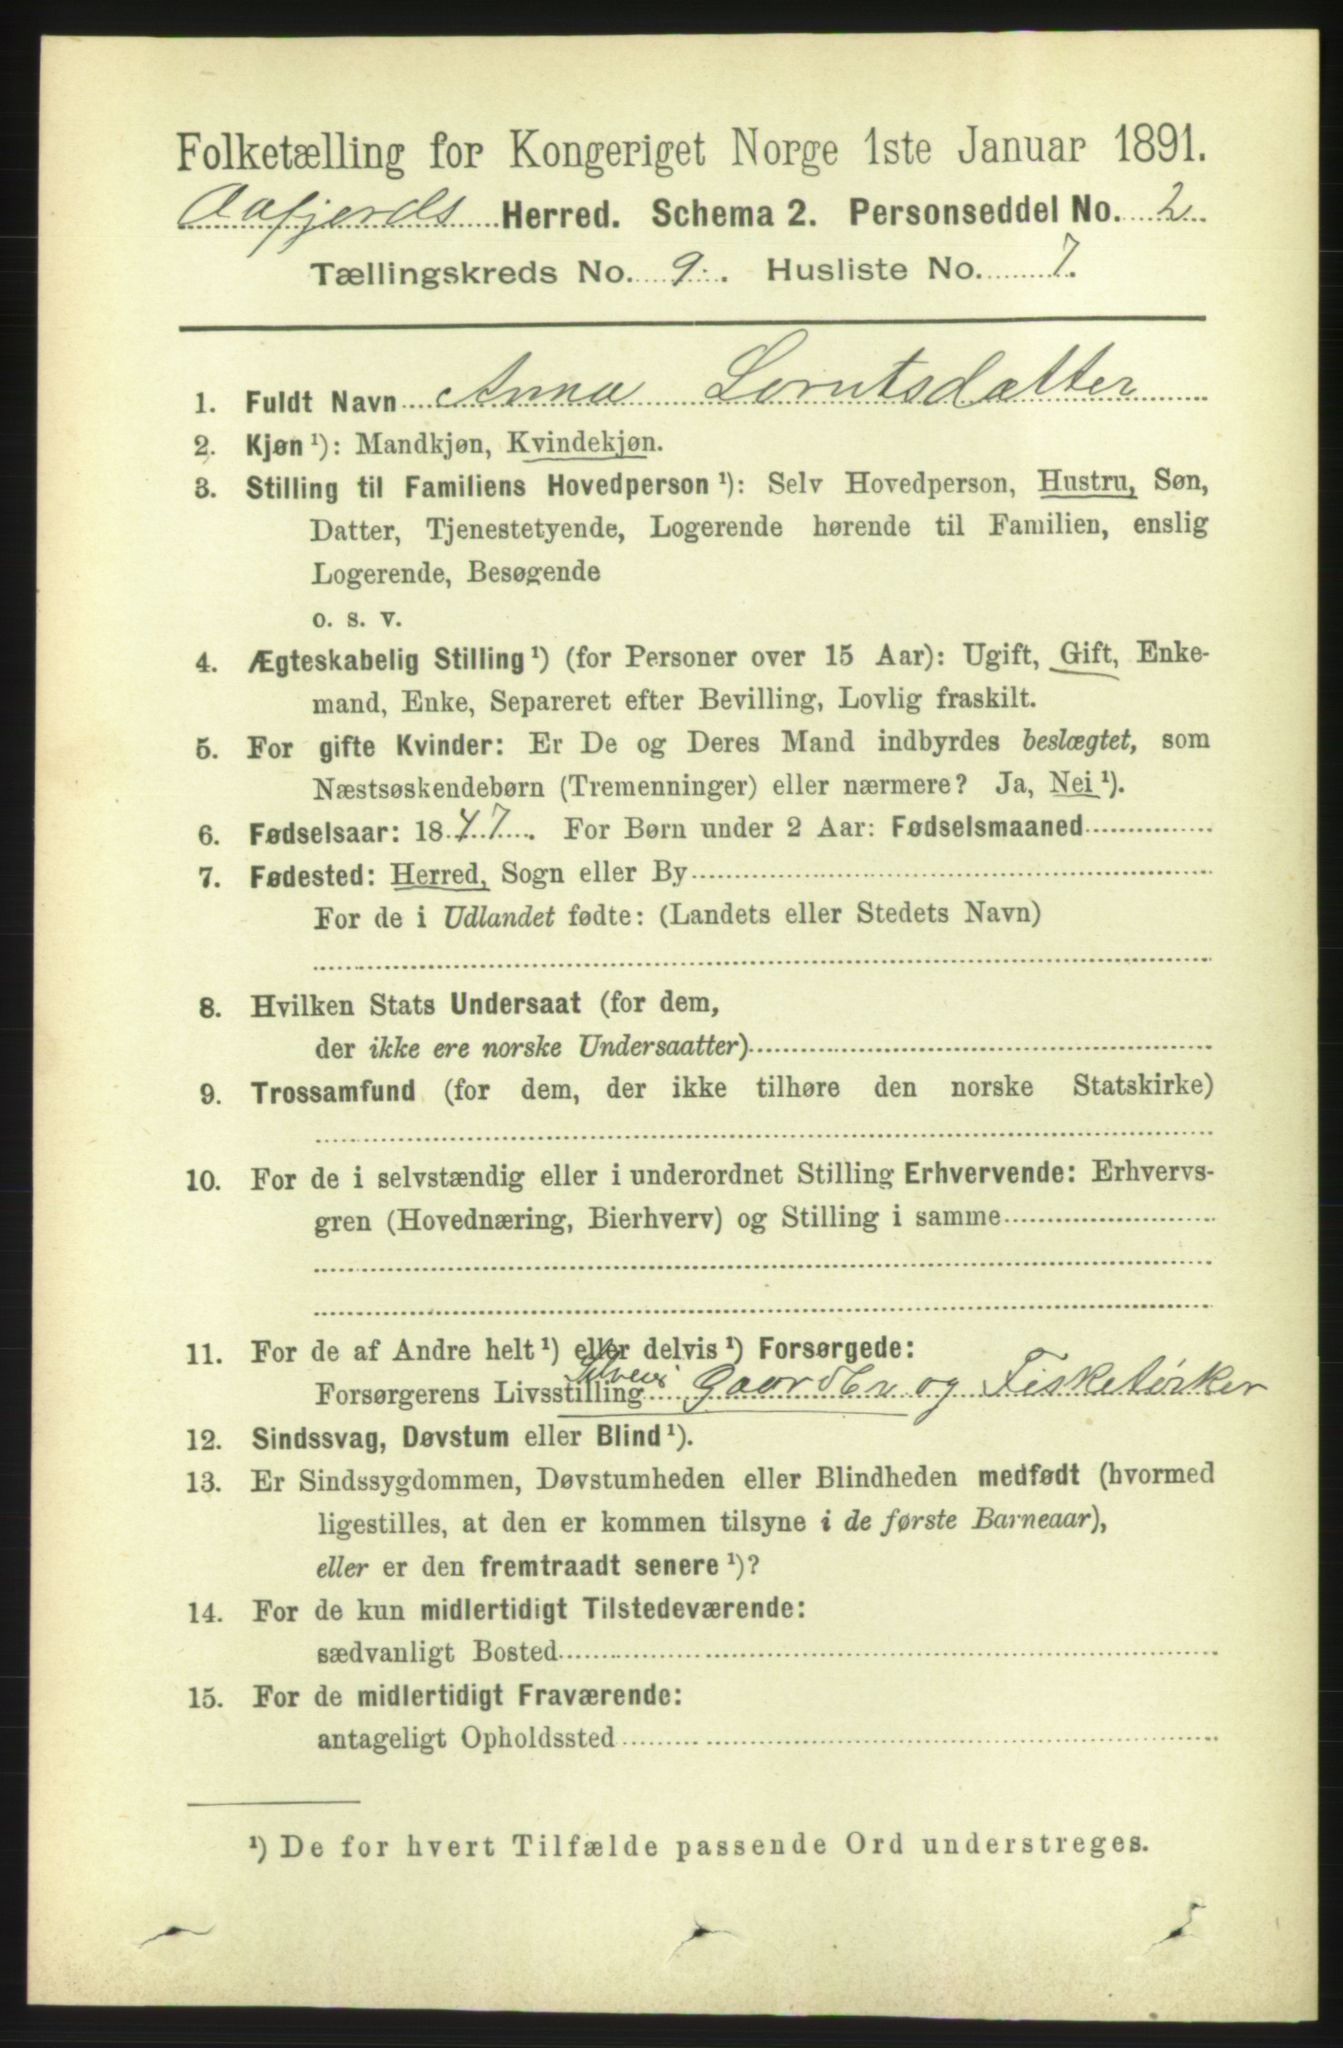 Folketælling for Kongeriget Norge 1ste Januar 1891.
Aafjords Herred. Schema 2. Personseddel No. 2
Tællingskreds No. 9. Husliste No. 7.
1. Fuldt Navn Anna Lorntsdatter
2. Kjøn ¹): Mandkjøn, Kvindekjøn.
3. Stilling til Familiens Hovedperson ¹): Selv Hovedperson, Hustru, Søn,
Datter, Tjenestetyende, Logerende hørende til Familien, enslig
Logerende, Besøgende
o. s. v.
4. Ægteskabelig Stilling ¹) (for Personer over 15 Aar): Ugift, Gift, Enke-
mand, Enke, Separeret efter Bevilling, Lovlig fraskilt.
5. For gifte Kvinder: Er De og Deres Mand indbyrdes beslægtet, som
Næstsøskendebørn (Tremenninger) eller nærmere? Ja, Nei ¹).
6. Fødselsaar: 1847. For Børn under 2 Aar: Fødselsmaaned
7. Fødested: Herred, Sogn eller By
For de i Udlandet fødte: (Landets eller Stedets Navn)
8. Hvilken Stats Undersaat (for dem,
der ikke ere norske Undersaatter)
9. Trossamfund (for dem, der ikke tilhøre den norske Statskirke)
10. For de i selvstændig eller i underordnet Stilling Erhvervende: Erhvervs-
gren (Hovednæring, Bierhverv) og Stilling i samme
11. For de af Andre helt ¹) eller delvis ¹) Forsørgede:
Selveier
Forsørgerens Livsstilling Gaardbr og Fisketørker
12. Sindssvag, Døvstum eller Blind ¹).
13. Er Sindssygdommen, Døvstumheden eller Blindheden medfødt (hvormed
ligestilles, at den er kommen tilsyne i de første Barneaar),
eller er den fremtraadt senere ¹)?
14. For de kun midlertidigt Tilstedeværende:
sædvanligt Bosted
15. For de midlertidigt Fraværende:
antageligt Opholdssted
¹) De for hvert Tilfælde passende Ord understreges.